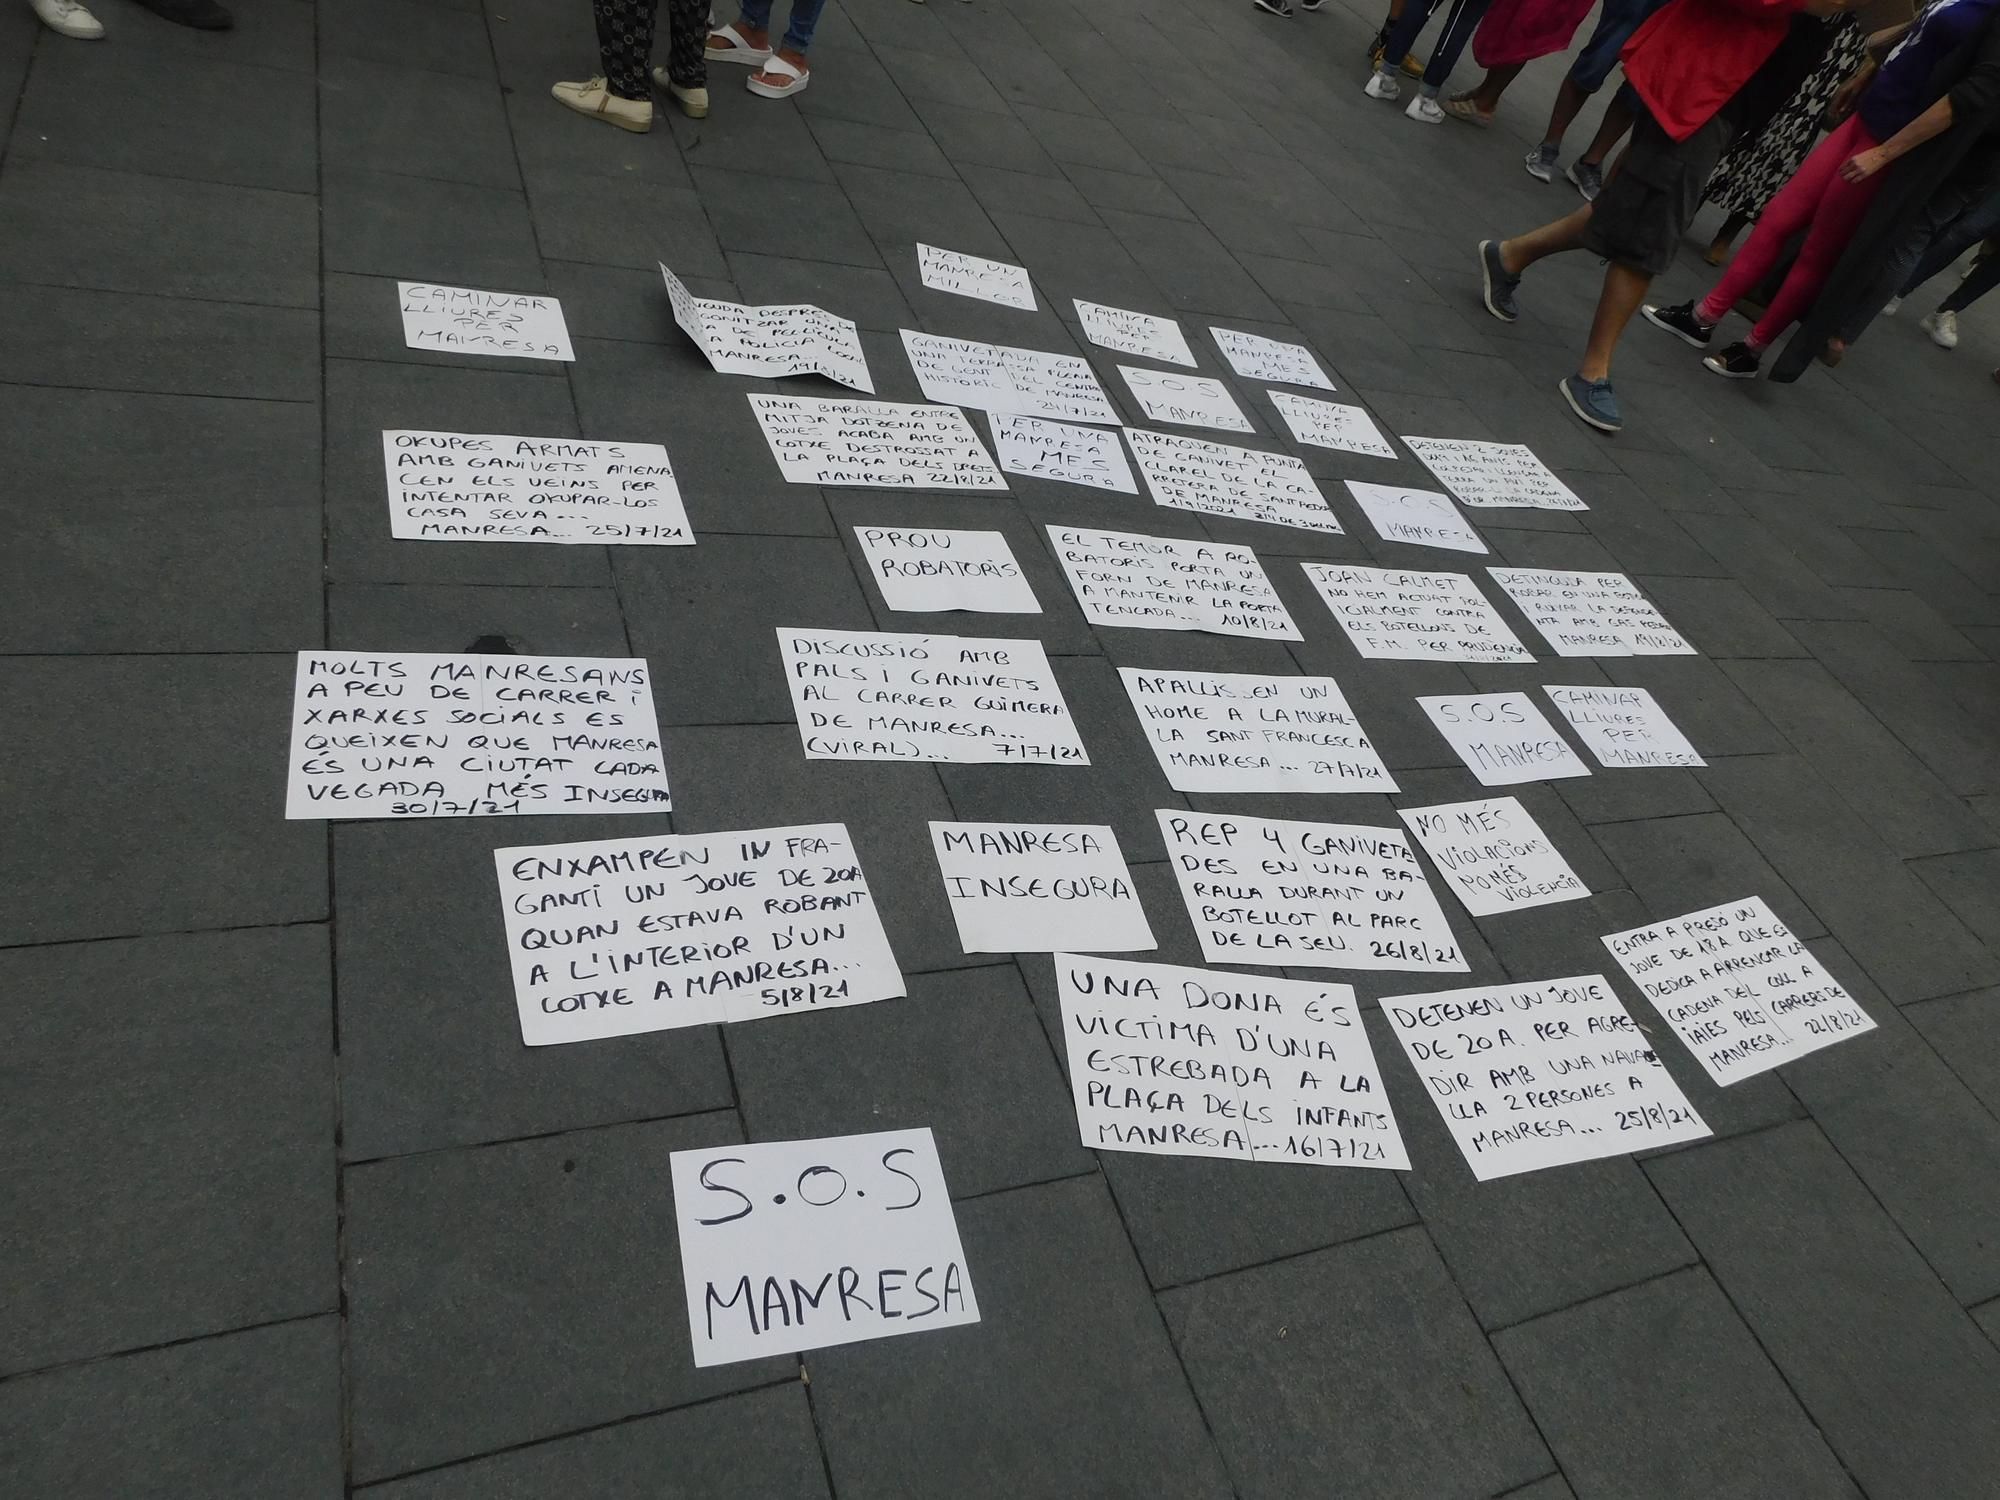 PER UN
MANRESA
MILLOR
CAMINAR
LLIURES
PER
MANRESA
DESPRÉS DE
UNA
DE PEL·LÍCULA
A POLICIA LOCAL
MANRESA...
19/8/21
GANIVETADA EN
UNA TERRASSA PLENA
DE GENT DEL CENTRE
HISTÒRIC DE MANRESA
24/7/21
CAMINA
LLIURES
PER
MANRESA
PER UNA
MANRESA
MES
SEGURA
S.O.S
MANRESA
CAMINA
LLIURES
PER
MANRESA
UNA BARALLA ENTRE
MITJA DOTZENA DE
JOVES ACABA AMB UN
COTXE DESTROSSAT A
LA PLAÇA DELS DRETS
MANRESA 22/8/21
PER UNA
MANRESA
MES
SEGURA
ATRAQUEN A PUNTA
DE GANIVET EL
CLAREL DE LA CA-
RRETERA DE SANTPEDOR
DE MANRESA
1/9/2021
DETENEN 2 JOVES
ANYS PER
TERRA UN AVI PER
MANRESA
OKUPES ARMATS
AMB GANIVETS AMENA
CEN ELS VEINS PER
INTENTAR OKUPAR-LOS
CASA SEVA...
MANRESA... 25/7/21
S.O.S
MANRESA
PROU
ROBATORIS
EL TEMOR A RO-
BATORIS PORTA UN
FORN DE MANRESA
A MANTENIR LA PORTA
TENCADA... 10/8/21
JOAN CALMET
NO HEM ACTUAT POL-
ICIALMENT CONTRA
ELS BOTELLONS DE
F.M. PER PRUDÈNCIA
DETINGUDA PER
ROBAR EN UNA
I RUIXAR LA DEPENDE
NTA AMB GAS
MANRESA 19/8/21
MOLTS MANRESANS
A PEU DE CARRER i
XARXES SOCIALS ES
QUEIXEN QUE MANRESA
ÉS UNA CIUTAT CADA
VEGADA MÉS INSEGURA
30/7/21
DISCUSSIÓ AMB
PALS i GANIVETS
AL CARRER GUIMERA
DE MANRESA...
(VIRAL)... 7/7/21
APALLISSEN UN
HOME A LA MURAL-
LA SANT FRANCESC A
MANRESA... 27/7/21
S.O.S
MANRESA
CAMINAR
LLIURES
PER
MANRESA
ENXAMPEN IN FRA-
GANTI UN JOVE DE 20A
QUAN ESTAVA ROBANT
A L'INTERIOR D'UN
COTXE A MANRESA...
5/8/21
MANRESA
INSEGURA
REP 4 GANIVETA
DES EN UNA BA-
RALLA DURANT UN
BOTELLOT AL PARC
DE LA SEU. 26/8/21
NO MÉS
VIOLACIONS
NO MÉS
VIOLENCIA
ENTRA A PRESÓ UN
JOVE DE 18A QUE ES
DEDICA A ARRENCAR LA
CADENA DEL COLL A
IAIES PELS CARRERS DE
MANRESA... 22/8/21
UNA DONA ÉS
VICTIMA D'UNA
ESTREBADA A LA
PLAÇA DELS INFANTS
MANRESA...16/7/21
DETENEN UN JOVE
DE 20A. PER AGRE-
DIR AMB UNA NAVA
LLA 2 PERSONES A
MANRESA... 25/8/21
S.O.S
MANRESA